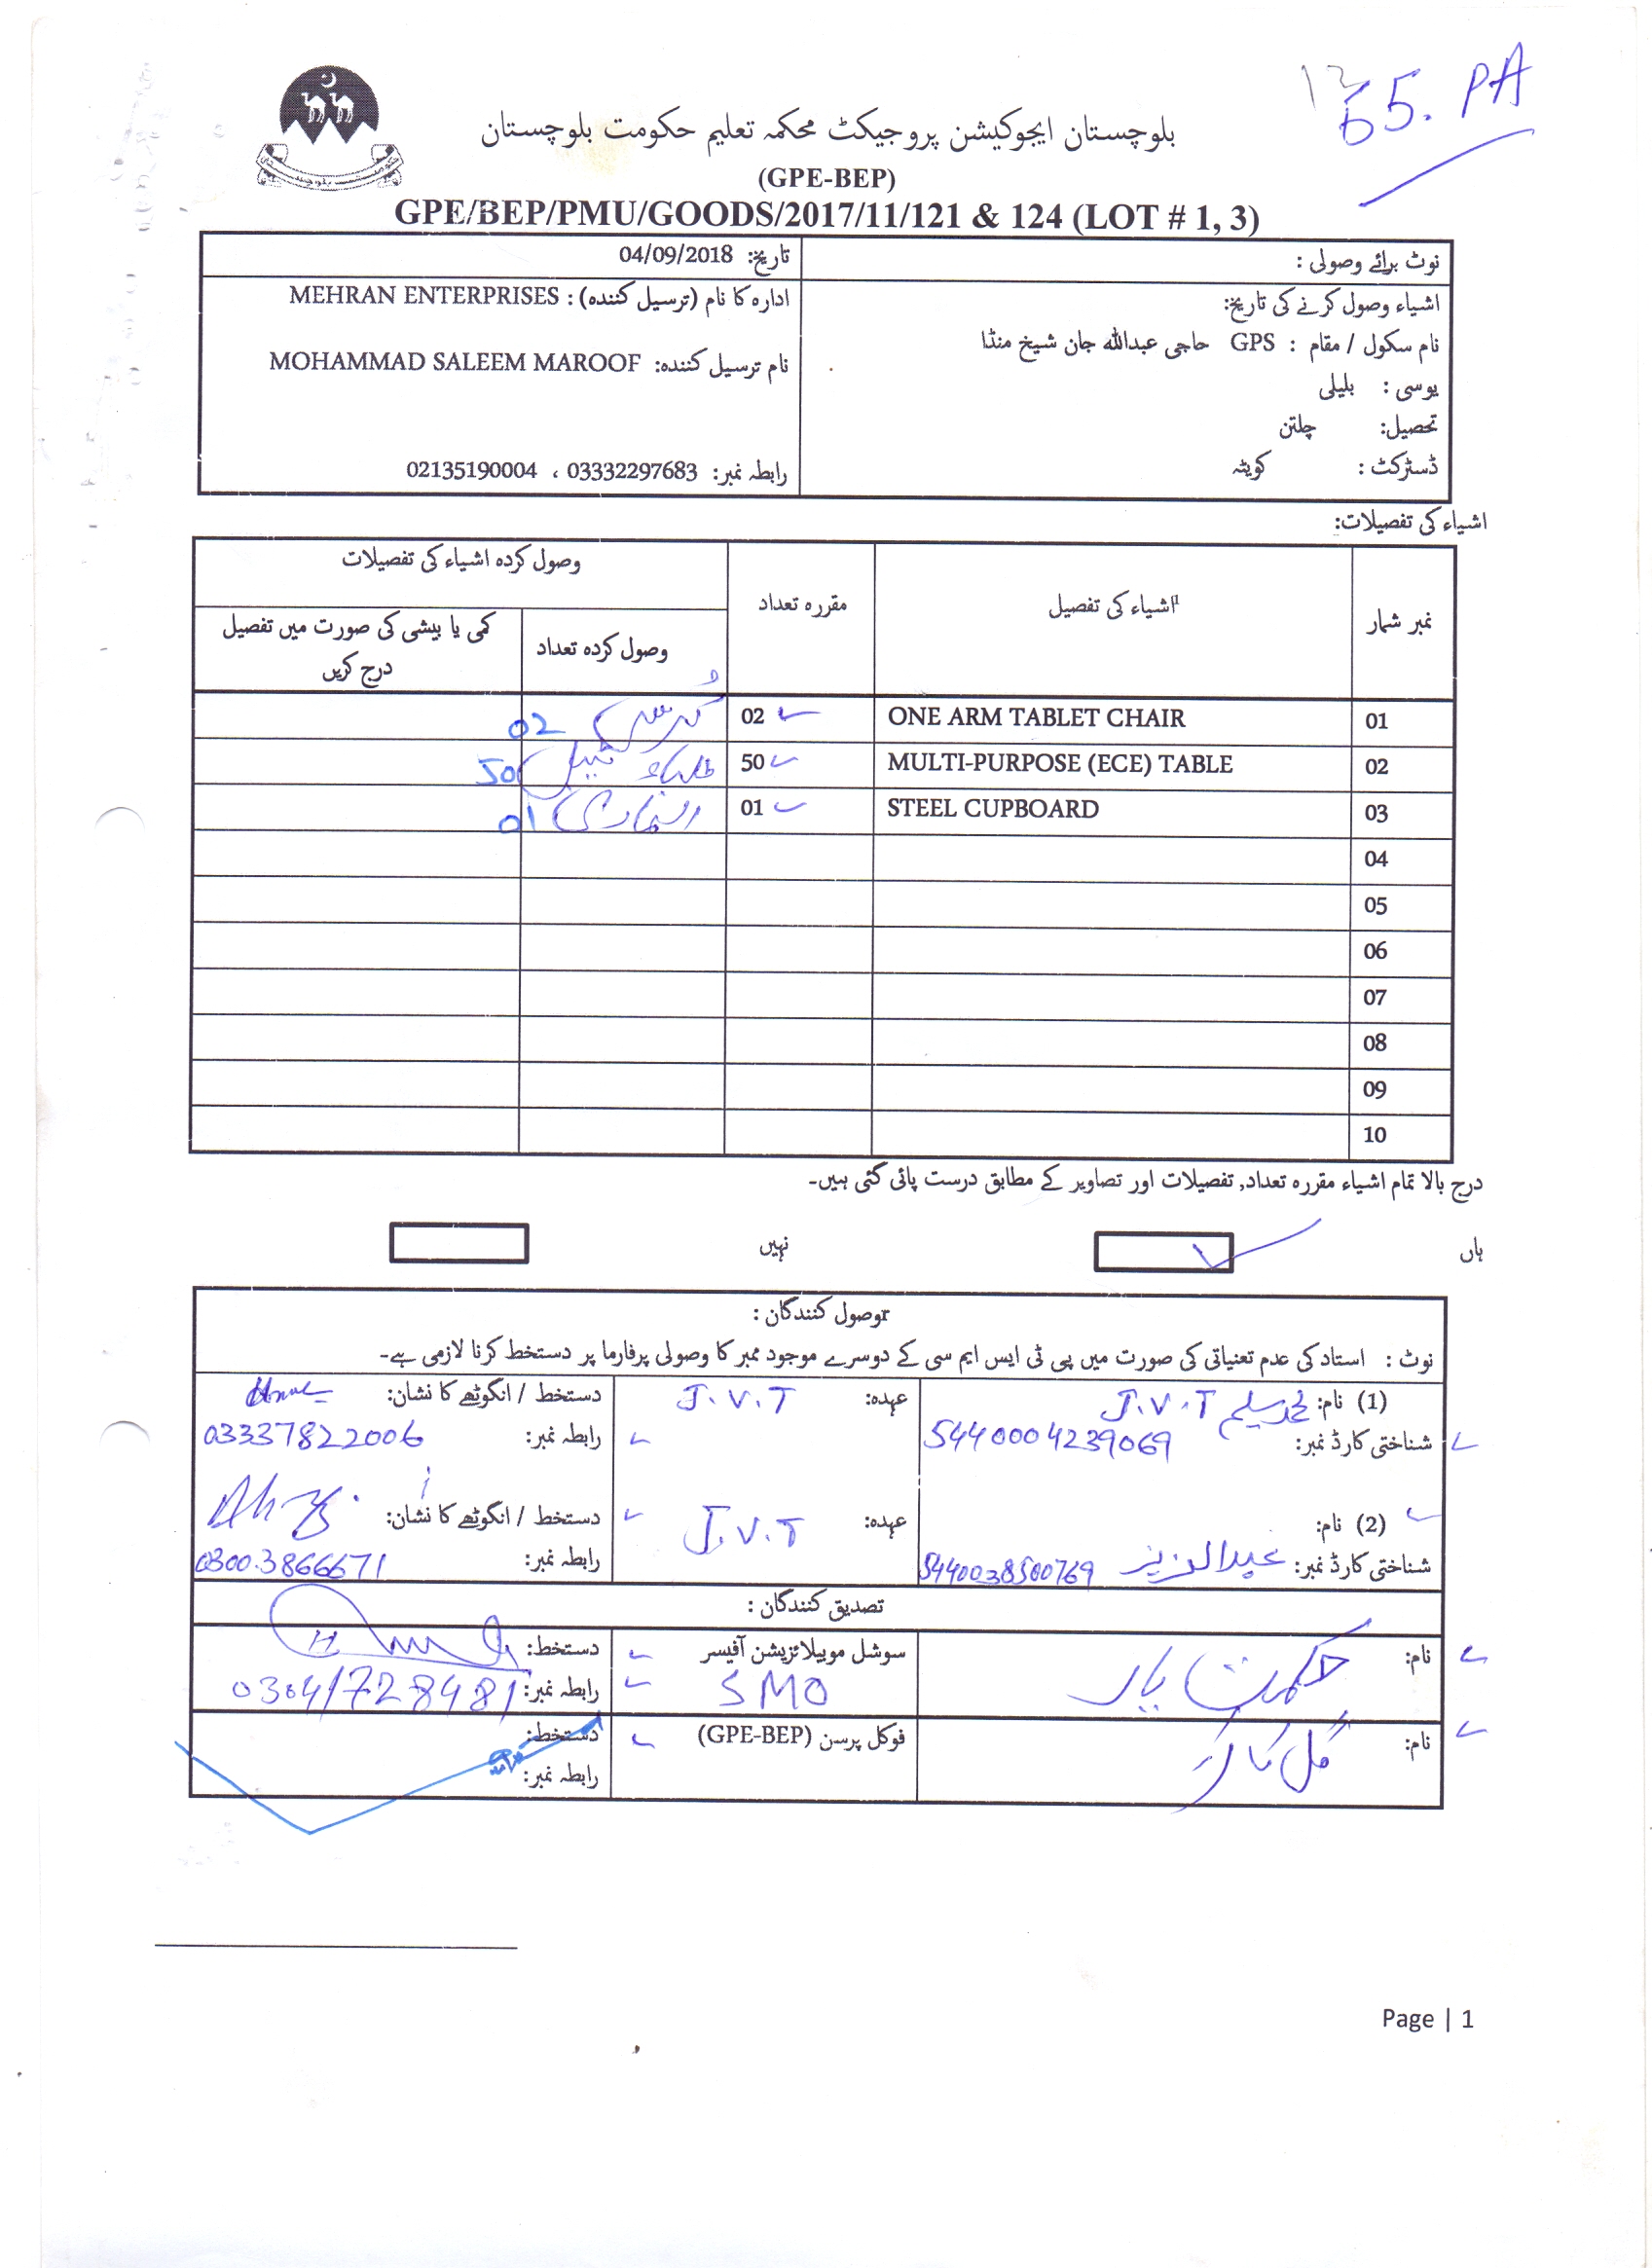 65. PA
بلوچستان ایجوکیشن پروجیکٹ محکمہ تعلیم حکومت بلوچستان
(GPE-BEP)
GPE/BEP/PMU/GOODS/2017/11/121 & 124 (LOT # 1, 3)
نوٹ برائے وصولی :
تاریخ: 04/09/2018
اشیاء وصول کرنے کی تاریخ:
ادارہ کا نام (ترسیل کنندہ) : MEHRAN ENTERPRISES
نام سکول / مقام : GPS حاجی عبداللہ جان شیخ منڈا
نام ترسیل کنندہ: MOHAMMAD SALEEM MAROOF
یوسی : بلیلی
تحصیل: چلتن
ڈسٹرکٹ : کوئٹہ
رابطہ نمبر: 03332297683 ، 02135190004
اشیاء کی تفصیلات:
نمبر شمار اشیاء کی تفصیل مقررہ تعداد وصول کردہ اشیاء کی تفصیلات
وصول کردہ تعداد کمی یا بیشی کی صورت میں تفصیل درج کریں
01 ONE ARM TABLET CHAIR 02 کرسی 02
02 MULTI-PURPOSE (ECE) TABLE 50 طلباء ٹیبل 50
03 STEEL CUPBOARD 01 الماری 01
04
05
06
07
08
09
10
درج بالا تمام اشیاء مقررہ تعداد, تفصیلات اور تصاویر کے مطابق درست پائی گئی ہیں۔
ہاں نہیں
وصول کنندگان :
نوٹ : استاد کی عدم تعنیاتی کی صورت میں پی ٹی ایس ایم سی کے دوسرے موجود ممبر کا وصولی پرفارما پر دستخط کرنا لازمی ہے۔
(1) نام: محمد سلیم J.V.T عہدہ: J.V.T دستخط / انگوٹھے کا نشان:
شناختی کارڈ نمبر: 5440004239069 رابطہ نمبر: 03337822006
(2) نام: عہدہ: J.V.T دستخط / انگوٹھے کا نشان:
شناختی کارڈ نمبر: عبدالعزیز 5440038500769 رابطہ نمبر: 0300.3866671
تصدیق کنندگان :
نام: حکمت یار سوشل موبیلائزیشن آفیسر دستخط:
SMO رابطہ نمبر: 03041728481
نام: فوکل پرسن (GPE-BEP) دستخط:
رابطہ نمبر:
Page | 1